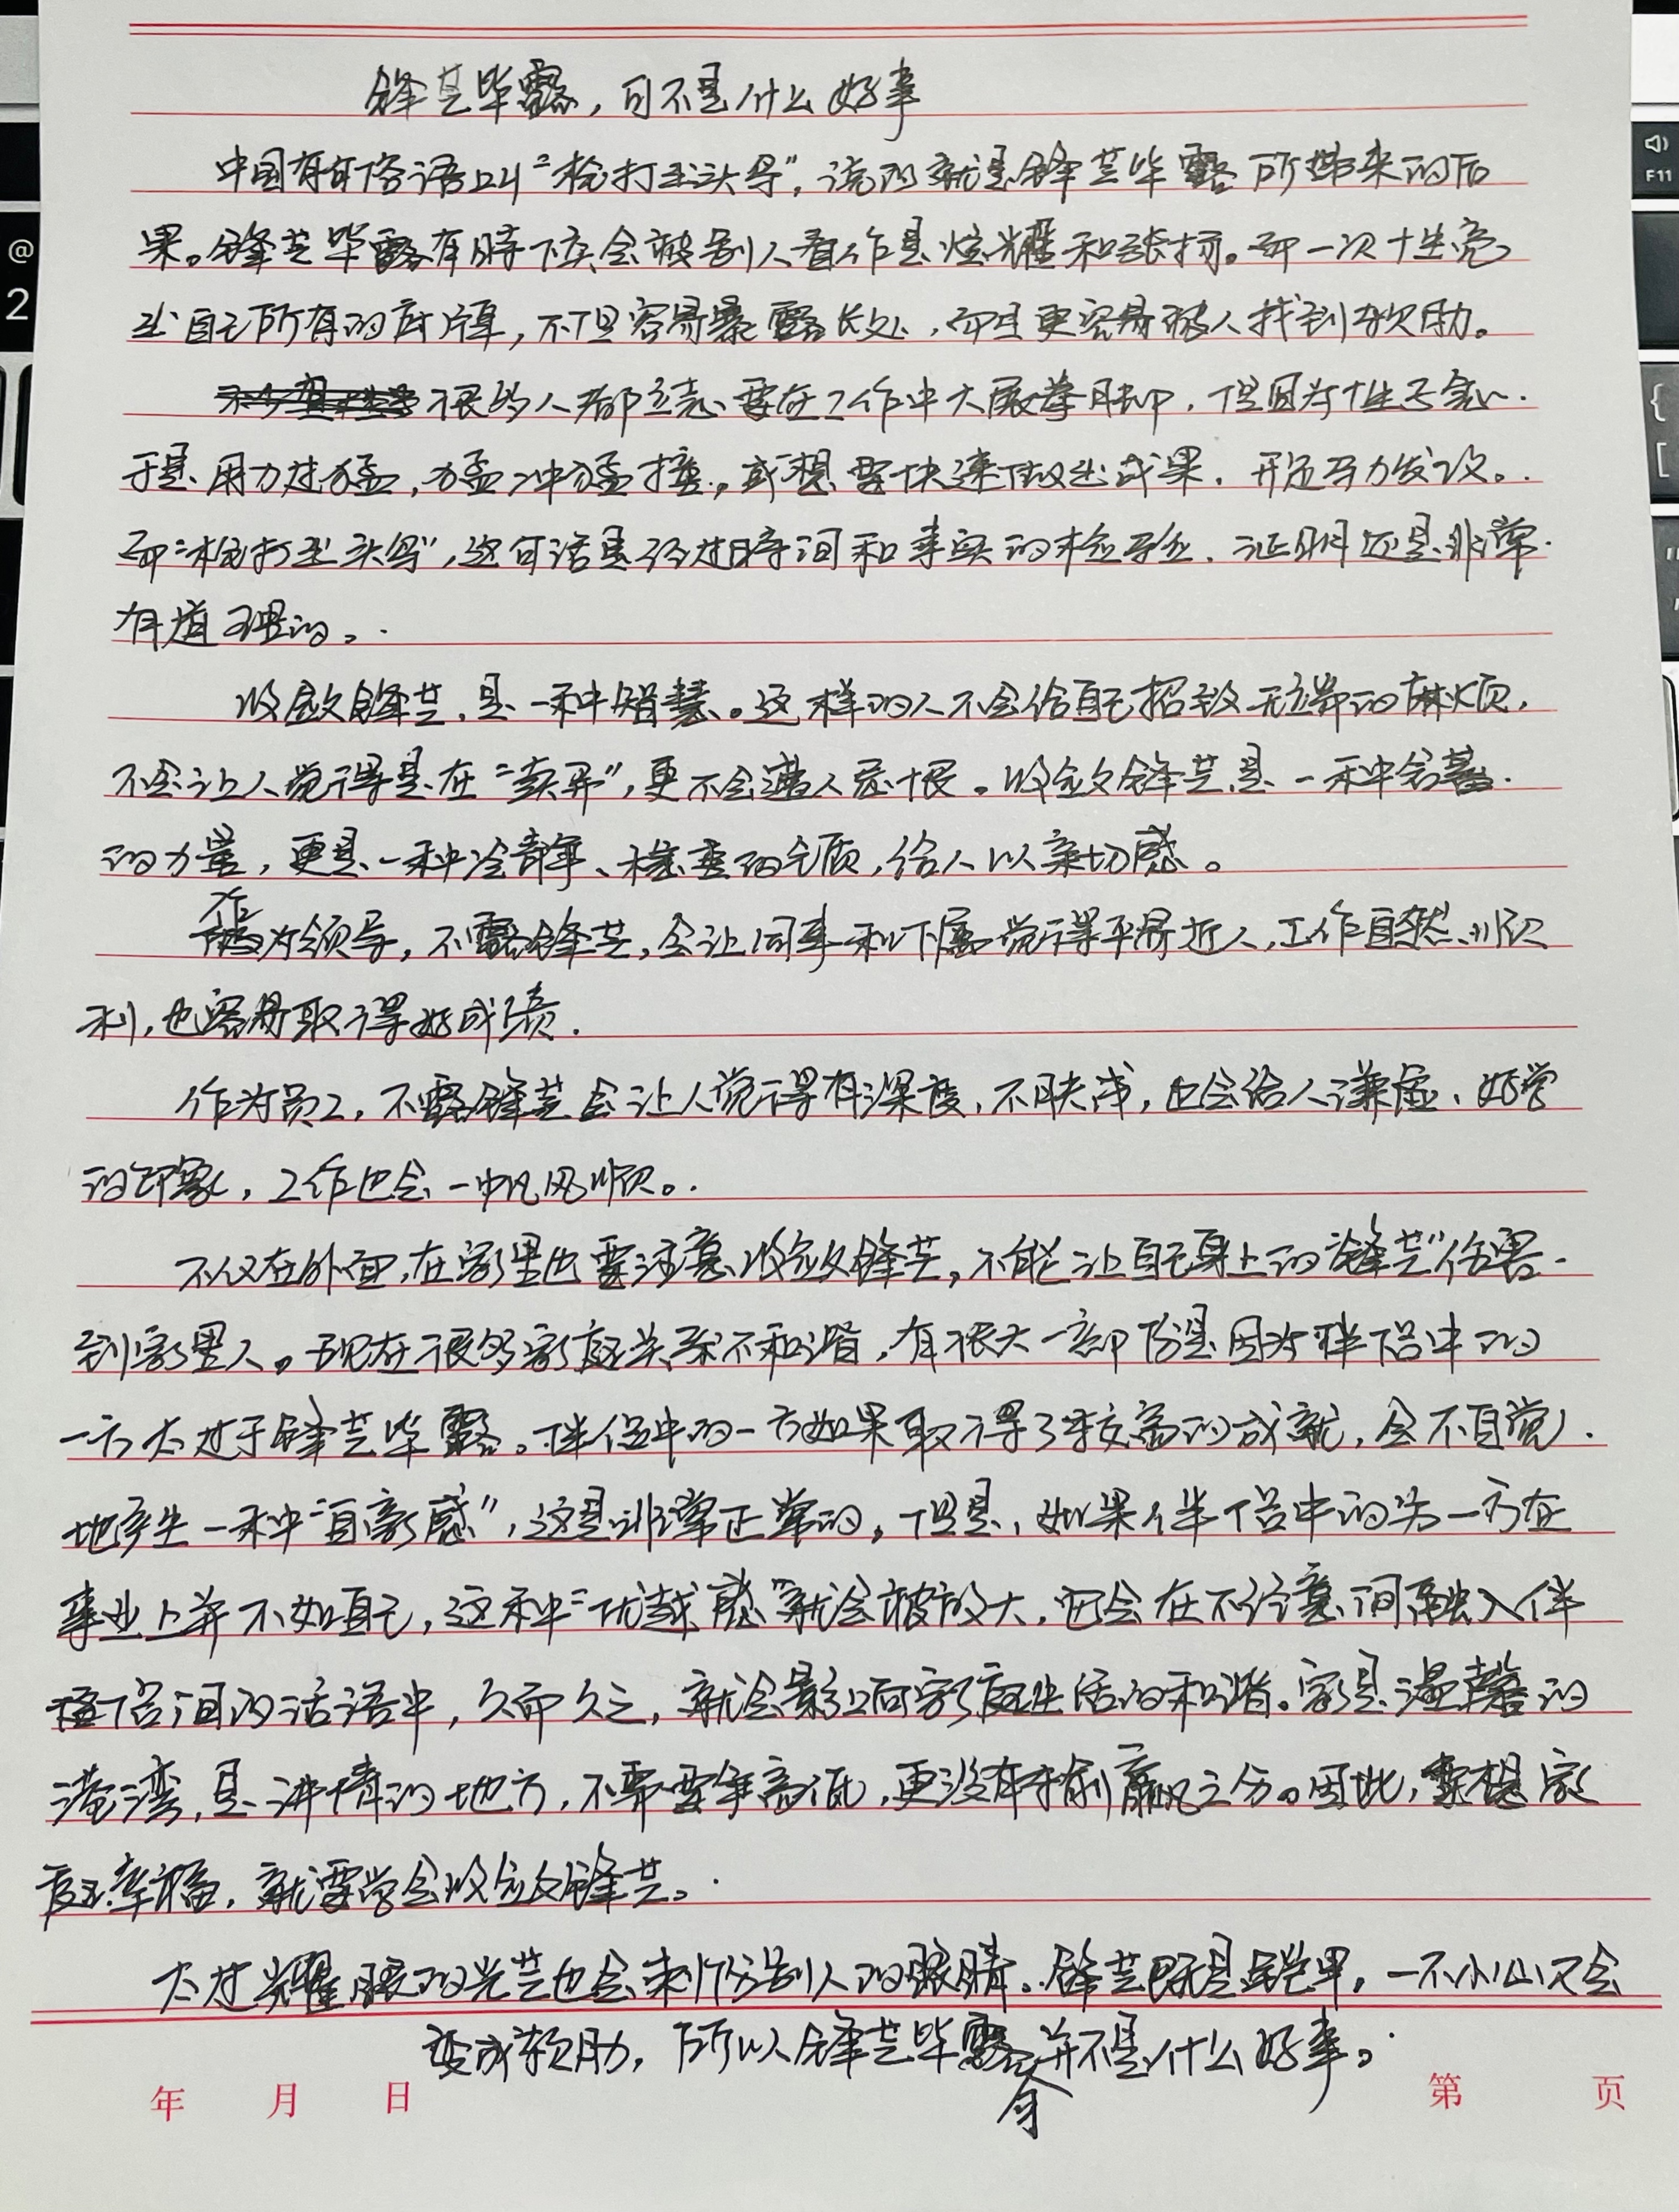 锋芒毕露,可不是什么好事
中国有句俗语叫“枪打出头鸟”,说的就是锋芒毕露所带来的后
果。锋芒毕露有时下会被别人看作是炫耀和张扬。而一次性亮
出自己所有的底牌,不但容易暴露长处,而且更容易被人找到软肋。
很多人都立志要在工作中大展拳脚,但因为性子急,
于是用力过猛,猛冲猛撞。或想要快速做出成果,开足马力发议。
而“枪打出头鸟”,这句话是经过时间和事实的检验,证明还是非常
有道理的。
收敛锋芒,是一种智慧。这样的人不会给自己招致无端的麻烦,
不会让人觉得是在“卖弄”,更不会遭人忌恨。收敛锋芒是一种含蓄
的力量,更是一种冷静、稳重的气质,给人以亲切感。
作为领导,不露锋芒,会让同事和下属觉得平易近人,工作自然顺
利,也容易取得好成绩.
作为员工,不露锋芒会让人觉得有深度,不肤浅,也会给人谦虚、好学
的印象,工作也会一帆风顺。
不仅在外面,在家里也要注意收敛锋芒,不能让自己身上的“锋芒”伤害
到家里人。现在很多家庭关系不和谐,有很大一部份是因为伴侣中的
一方太过于锋芒毕露。伴侣中的一方如果取得了较高的成就,会不自觉
地产生一种“自豪感”,这是非常正常的,但是,如果伴侣中的另一方在
事业上并不如自己,这种“优越感”就会被放大,它会在不经意间融入伴
侣间的话语中,久而久之,就会影响家庭生活的和谐。家是温馨的
港湾,是讲情的地方,不需要争高低,更没有输赢之分。因此,要想家
庭幸福,就要学会收敛锋芒。
太过耀眼的光芒也会刺伤别人的眼睛。锋芒既是铠甲,一不小心又会
变成软肋,所以锋芒毕露并不是什么好事。
年 月 日 第 页